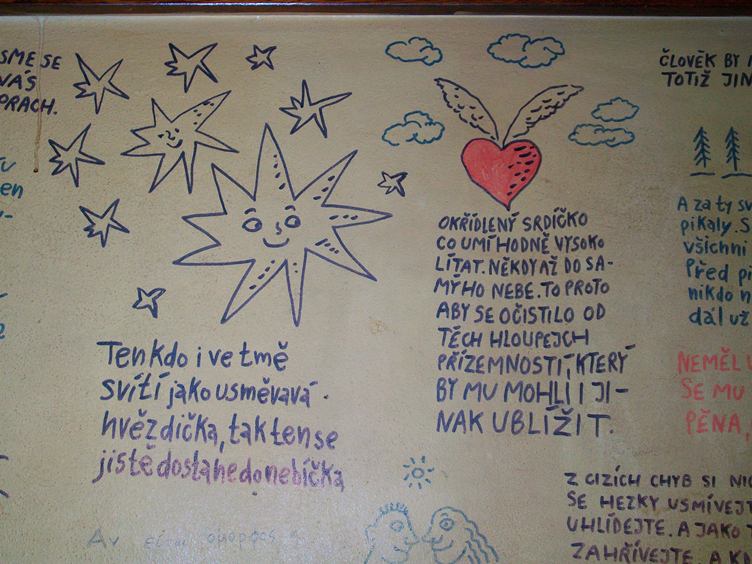 SME SE
NÁS
PRACH.
Ten kdo i ve tmě
svítí jako usměvavá
hvězdička, tak ten se
jistě dostane do nebíčka
OKŘÍDLENÝ SRDÍČKO
CO UMÍ HODNĚ VYSOKO
LÍTAT. NĚKDY AŽ DO SA-
MÝHO NEBE. TO PROTO
ABY SE OČISTILO OD
TĚCH HLOUPEJCH
PŘÍZEMNOSTÍ, KTERÝ
BY MU MOHLI I JI-
NAK UBLÍŽIT.
ČLOVĚK BY
TOTIŽ JIN
A za ty sv
pikaly. S
všichni
Před pi
nikdo n
dál už
NEMĚL
SE MU
PĚNA,
Z CIZÍCH CHYB SI NIC
SE HEZKY USMÍVEJT
UHLÍDEJTE. A JAKO
ZAHŘÍVEJTE. A K
Αν είσαι όμορφος